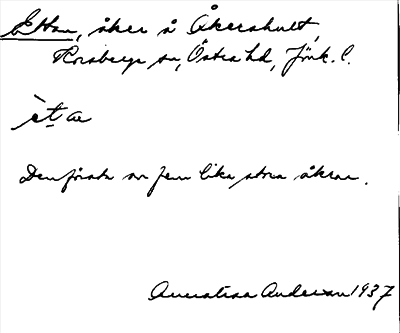 Ettan, åker å Åkershult,
Korsberga sn, Östra hd, Jönk. l.
èt ae
Den första av fem lika stora åkrar.
Anderson 1937